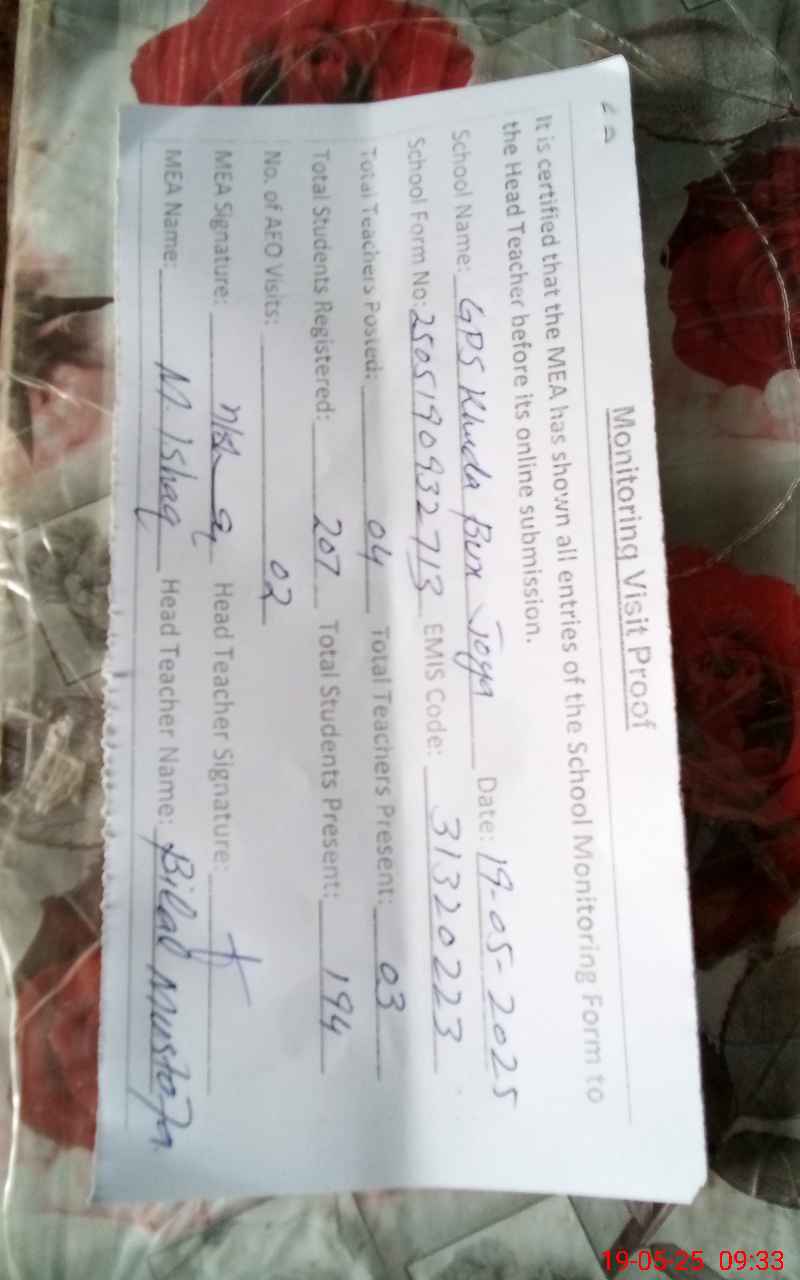 Monitoring Visit Proof
It is certified that the MEA has shown all entries of the School Monitoring Form to
the Head Teacher before its online submission.
School Name: GPS Khuda Bux Joya Date: 19-05-2025
School Form No: 2505190932713 EMIS Code: 31320223
Total Teachers Posted: 04 Total Teachers Present: 03
Total Students Registered: 207 Total Students Present: 194
No. of AEO Visits: 02
MEA Signature: Head Teacher Signature:
MEA Name: M. Ishaq Head Teacher Name: Bilal Mustafa
19-05-25 09:33